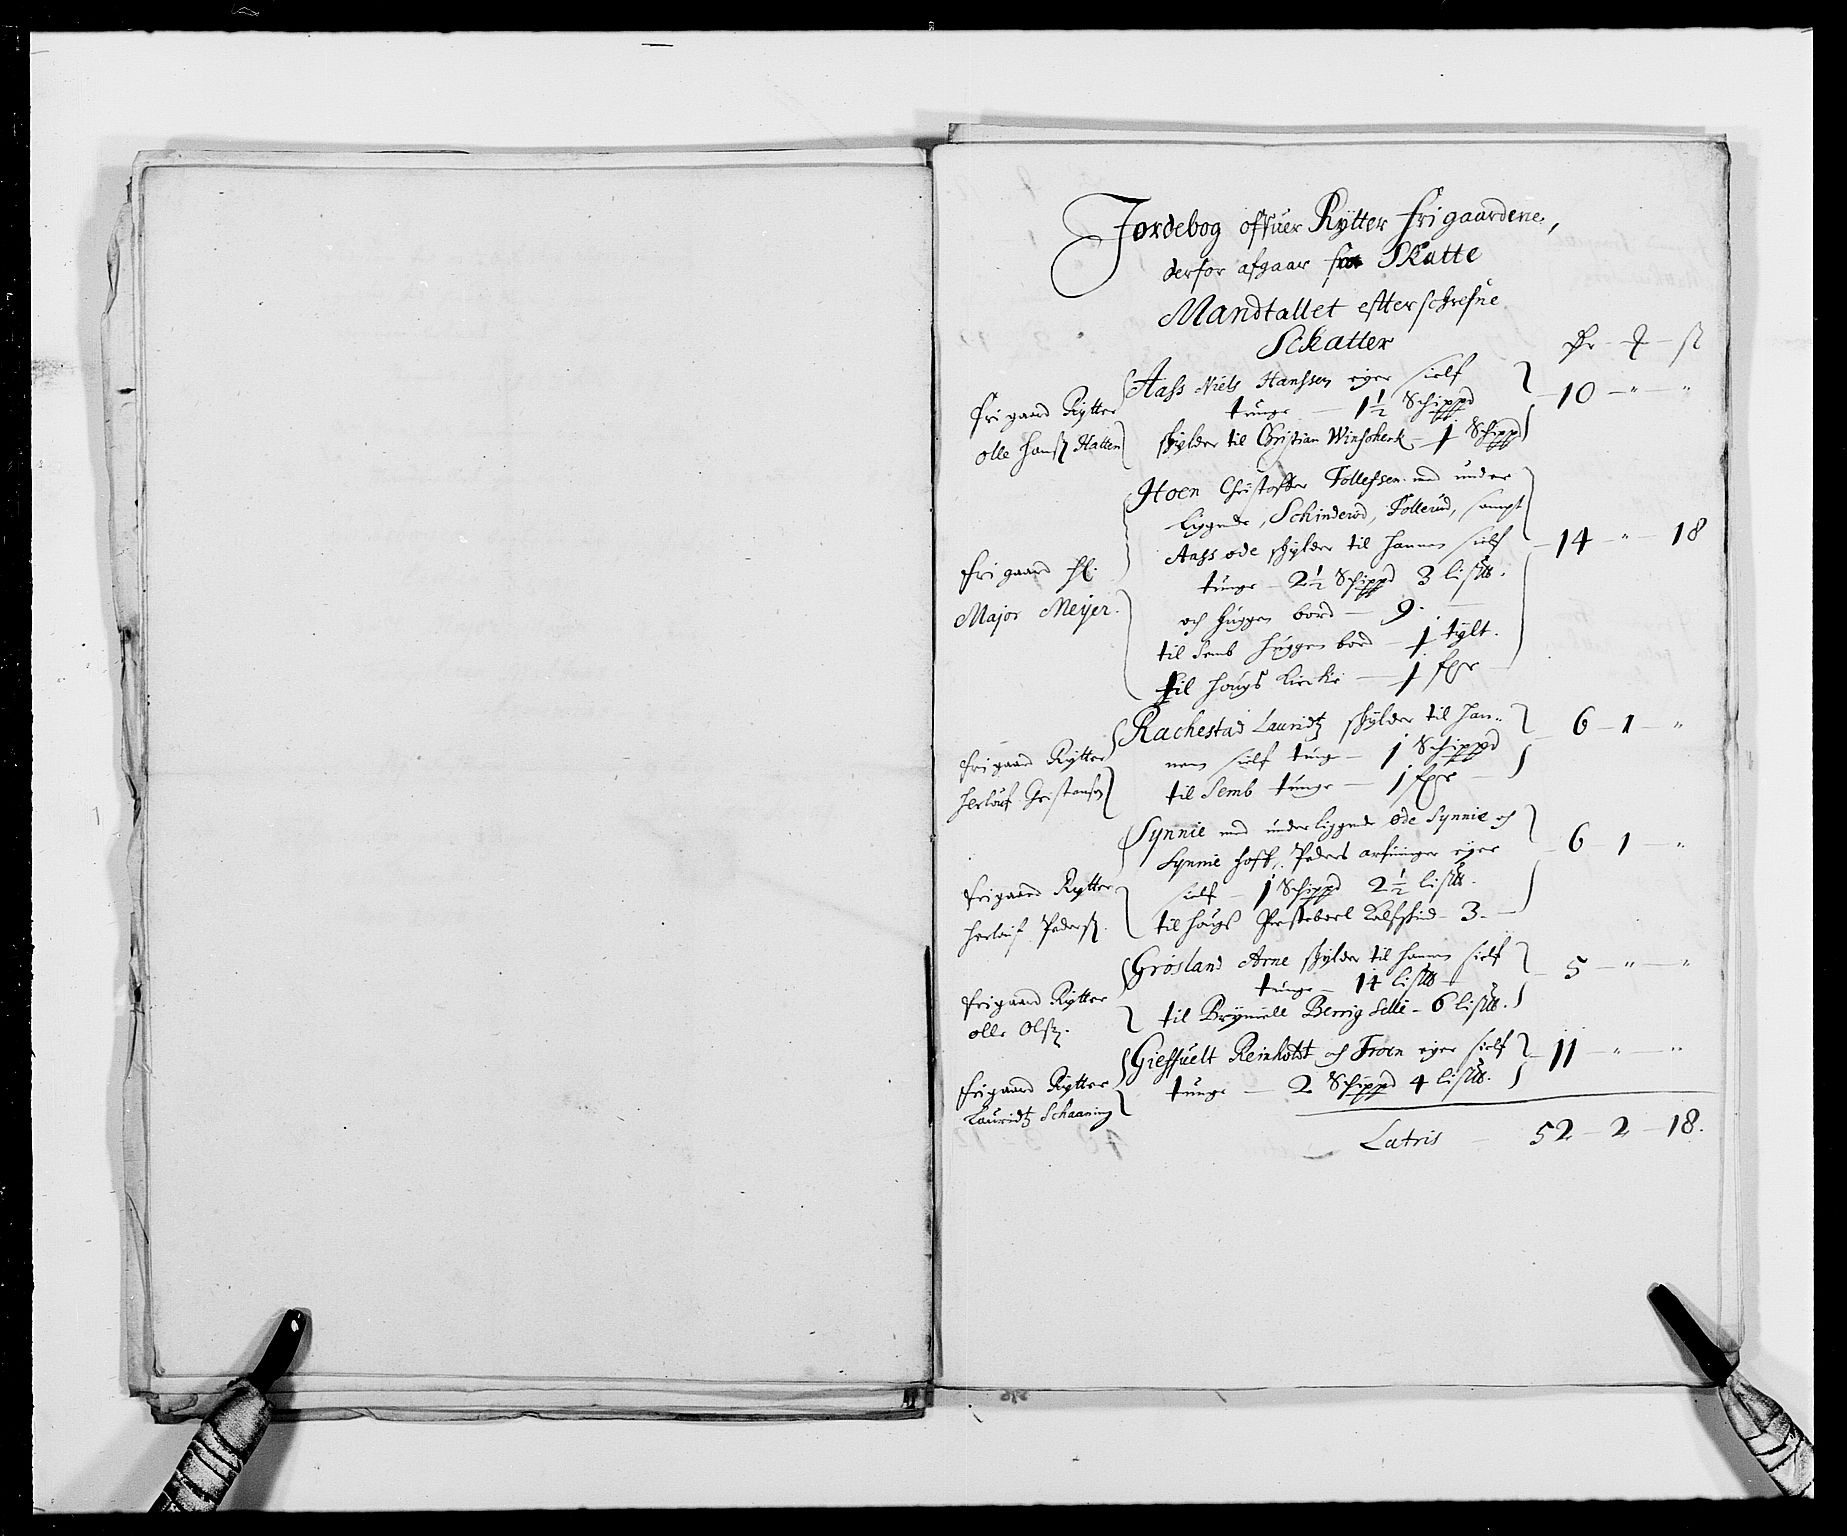 Jordebog offuer Rytter frigaardene,
derfor afgaar fra Skatte
Mandtallet efterschrefne
Schatter
Dr - ₰ - ß
frigaard Rytter
olle Hanß Hatten
Aass Niels Hanssen eger sielf
tunge — 1½ Schippd — 10 — " — "
schylder til Christian Winscherk — 1 Schippd
frigaard Hl.
Major Meyer.
Hoen Christoffer Tollefsen med under
liggende, Schinderød, Tollerud, sampt
Aass øde schylder til hannem sielf — 14 — " — 18
tunge — 2½ Schippd 3 lispd.
och huggen bord — 9.
til Semb huggen bord — 1 tylt.
til Hougs Kircke — 1 fgr
frigaard Rytter
Herluf Christensen
Rachestad Lauridtz schylder til han-
nem sielf tunge — 1 Schippd — 6 — 1 — "
til Semb tunge — 1 fgr
frigaard Rytter
Herluf Pederß.
Synnie med underliggende øde Synnie och
Synnie hoff, Peders arfuinger eger — 6 — 1 — "
sielf — 1 Schippd 2½ lispd.
til Hougs Presteborl Kalfskid — 3.
frigaard Rytter
olle Olß.
Grøsland Arne schylder til hannem sielf
tunge — 14 lispd — 5 — " — "
til Brynnell Berrig Selle — 6 lispd.
frigaard Rytter
Lauridtz Schaaning
Gieffuelt Reinholdt och Troen eger sielf — 11 — " — "
tunge — 2 Schippd 4 lispd.
Latris — 52 — 2 — 18.